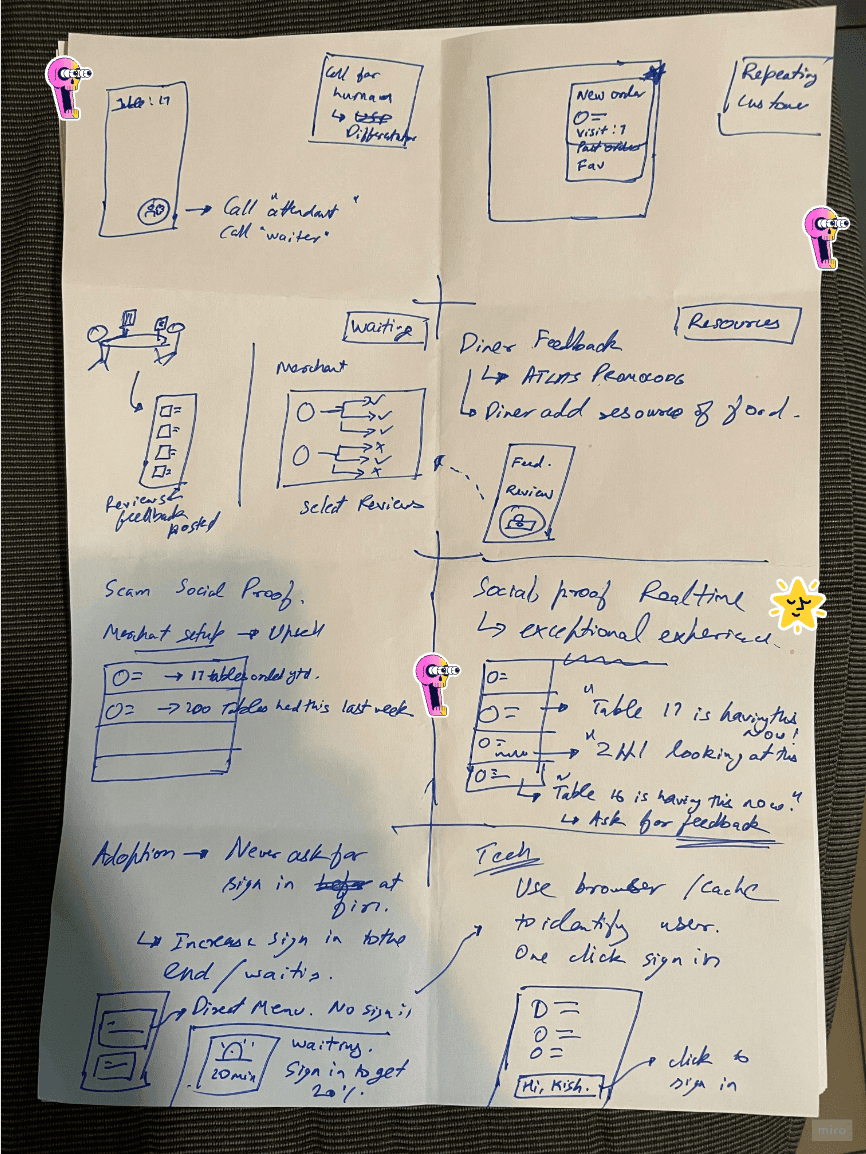 Table: 17
Call for
human
↳ USP
Differentator
→ Call "attendant"
Call "waiter"
New order
Visit: 7
Past order
Fav
Repeating
Customer
Waiting
Merchant
Reviews &
feedback
posted
Select Reviews
Resources
Diner Feedback
↳ ATLAS PROMOCODE
↳ Diner add resource of food.
Feed.
Review
Scam Social Proof.
Merchat setup → Upsell
→ 17 tables orded ytd.
→ 200 Tables had this last week
Social proof Realtime
↳ exceptional experience.
"Table 17 is having this
now!"
looking at this
"Table 16 is having this now."
↳ Ask for feedback
Adoption → Never ask for
sign in at
first.
↳ Increase sign in to the
end / waiting.
Direct Menu. No sign in
20 min
waiting.
Sign in to get
20%.
Tech
Use browser / cache
to identify user.
One click sign in
Hi, Kish.
click to
sign in
miro